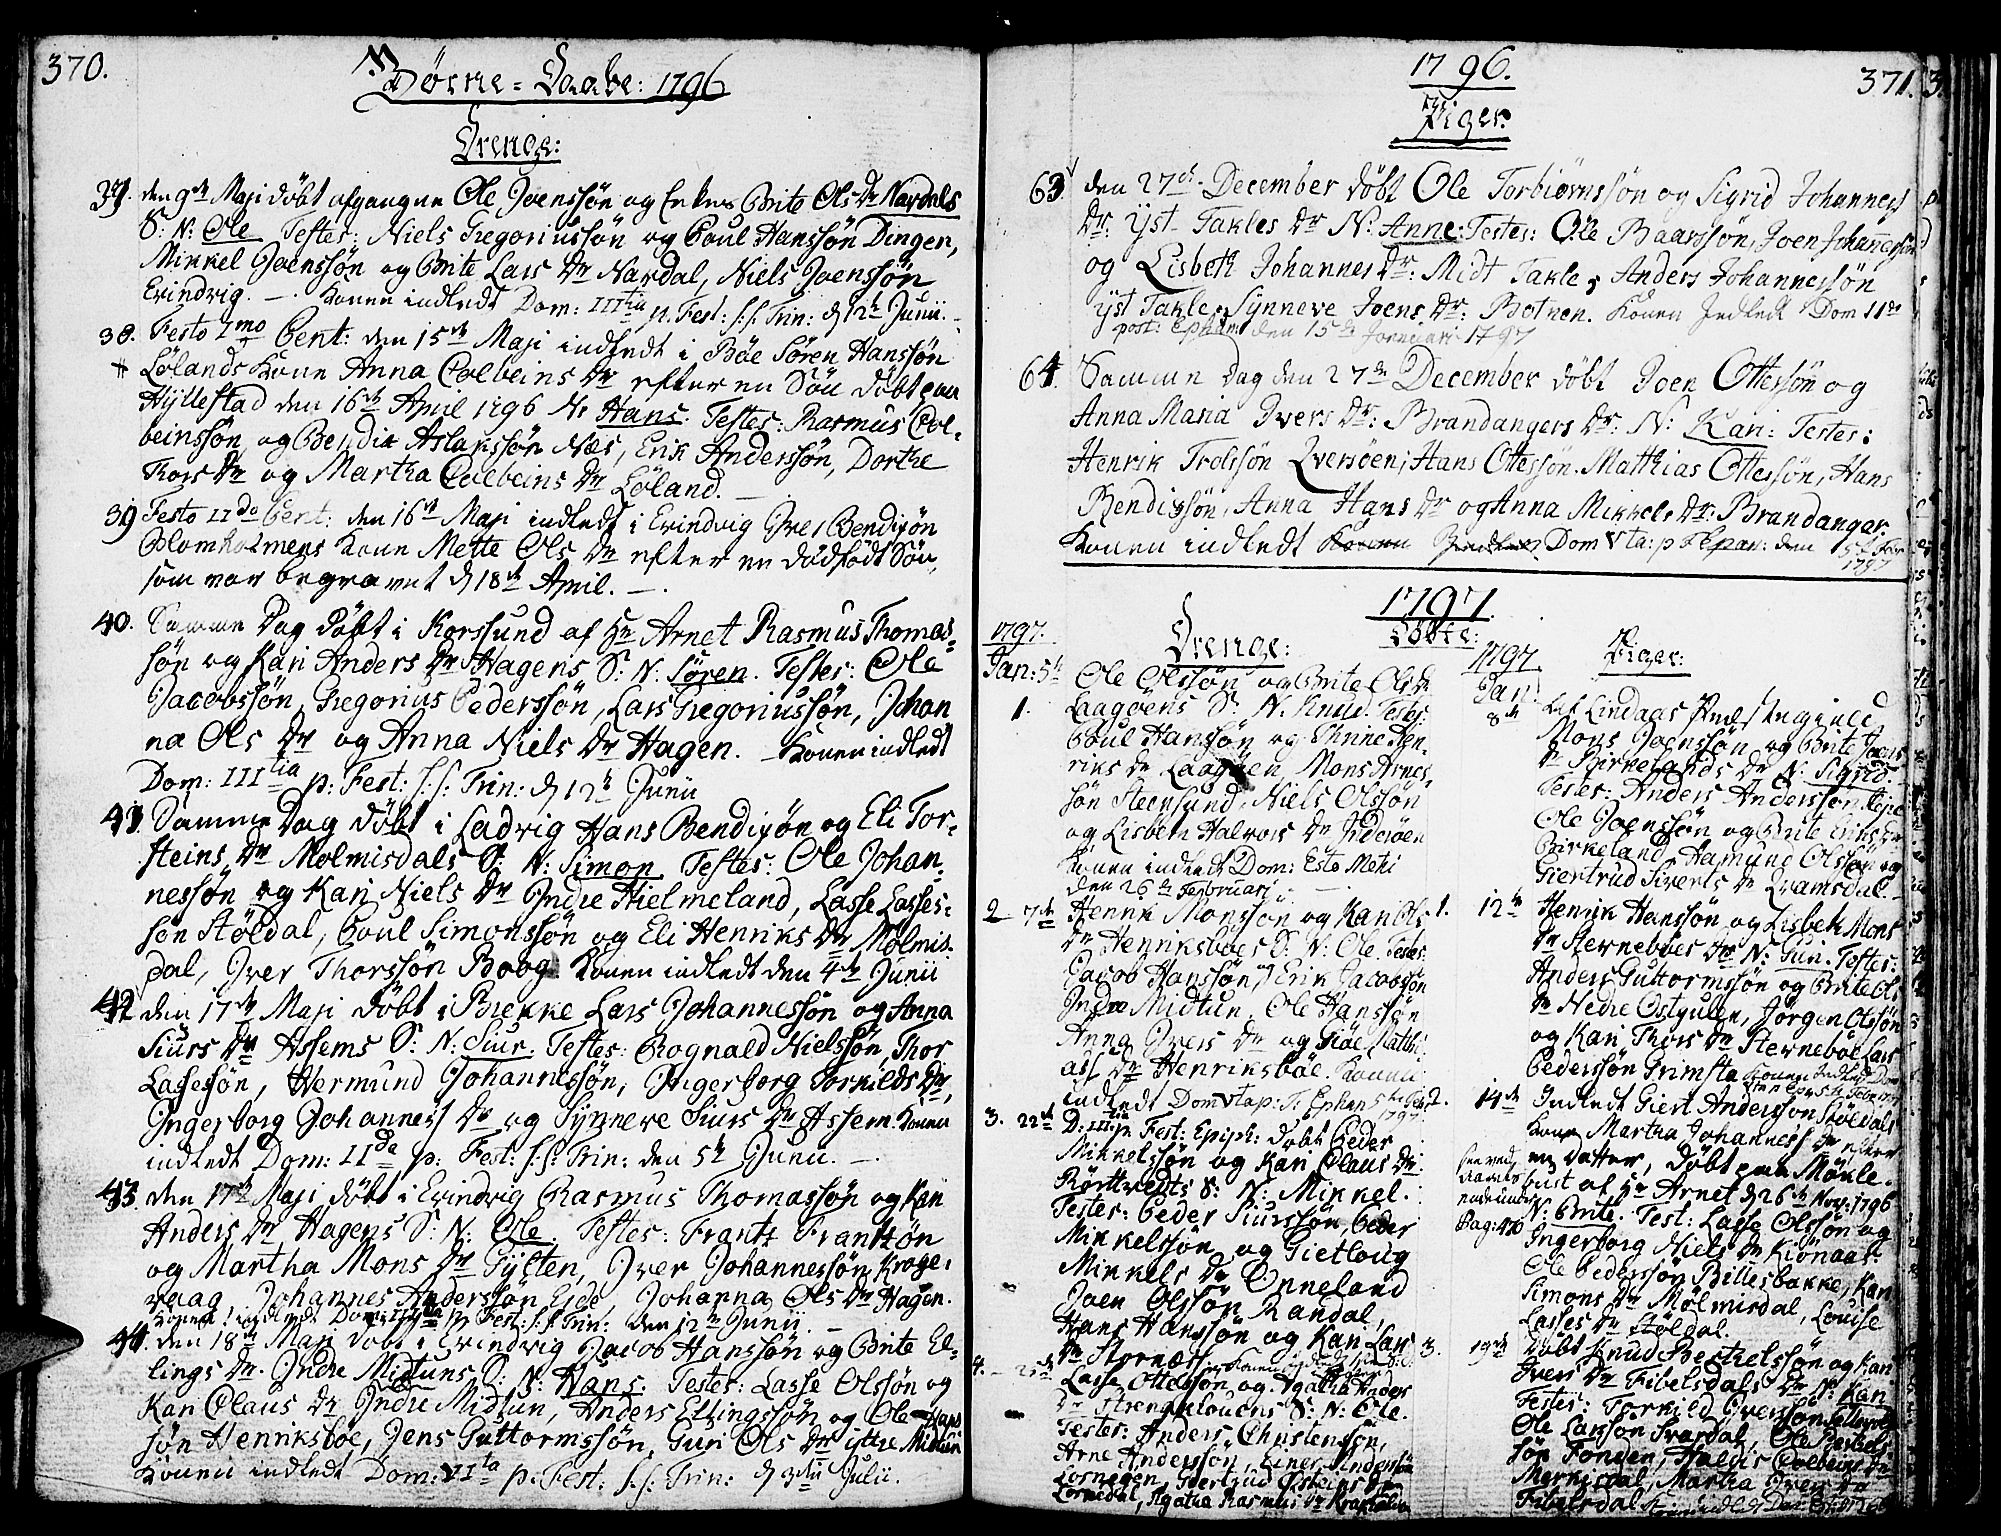 370.
Børne-Daabe: 1796
Drenge:
37. den 9de Maji døbt afgangne Ole Joenssøn og Enken Brite Ols Dr Nardals
S: N: Ole Testes: Niels Gregoriussøn og Poul Hanssøn Dingen,
Mikkel Joenssøn og Brite Lars Dr Nardal, Niels Joenssøn
Evindvig. Konen indledt Dom: IIItia p. Fest: S:S: Trin: d 12te Junii.
38. Festo Imo Pent: den 15de Maji indledt i Bøe Søren Hanssøn
Lølands Kone Anna Colbeins Dr efter en Søn døbt paa
Hyllestad den 16de April 1796 N: Hans. Testes: Rasmus Col-
beinssøn og Bendix Aslakssøn Næs, Erik Anderssøn, Dorthe
Thors Dr og Martha Colbeins Dr Løland.
39 Festo IIdo Pent: den 16de Maji indledt i Evindvig Iver Bendixøn
Blomholmens Kone Mette Ols Dr efter en dødfødt Søn,
som var begravet d 18de April.
40. Samme Dag døbt i Korssund af Hr Arnet Rasmus Thomas-
søn og Kari Anders Dr Hagens S: N: Søren. Testes: Ole
Jacobssøn, Gregorius Pederssøn, Lars Gregoriussøn, Johan
na Ols Dr og Anna Niels Dr Hagen. Konen indledt
Dom: IIItia p: Fest: S:S: Trin: d 12te Junii
41. Samme Dag døbt i Ladvig Hans Bendixøn og Eli Tor-
steins Dr Molmisdals S: N: Simon Testes: Ole Johan-
nessøn og Kari Niels Dr Indre Hielmeland, Lasse Lasses-
søn Støldal, Poul Simonssøn og Eli Henriks Dr Mølmis-
dal, Iver Thorssøn Boog Konen indledt den 4de Junii
42 den 17de Maji døbt i Brekke Lars Johannessøn og Anna
Siurs Dr Assems S: N: Siur. Testes: Rognald Nielssøn, Thor
Lassessøn, Hermund Johannessøn, Ingerborg Torkilds Dr,
Ingerborg Johannes Dr og Synneve Siurs Dr Assem. Konen
indledt Dom: IIda p: Fest: S:S: Trin: den 5te Junii.
43. den 17de Maji døbt i Evindvig Rasmus Thomassøn og Kari
Anders Dr Hagens S: N: Ole. Testes: Frantz Frantzøn
og Martha Mons Dr Gylten, Iver Johannessøn Kroge-
vaag, Johannes Anderssøn Eide, Johanna Ols Dr Hagen.
Konen indledt Dom: IIItia p: Fest: S:S: Trin: den 12te Junii
44. den 18de Maji døbt i Evindvig Jacob Hanssøn og Brite El-
lings Dr Indre Midtuns S: N: Hans. Testes: Lasse Olssøn og
Kari Claus Dr Indre Midtun, Anders Ellingssøn og Ole Hans
søn Henriksbøe, Jens Guttormssøn, Guri Ols Dr yttre Midtun
Konen indledt Dom: VIta p: Fest: S:S: Trin: d 3die Julii.
1796.
371.
Piger.
63 den 27de December døbt Ole Torbiørnssøn og Sigrid Johannes
Dr: yst Takles Dr N: Anne: Testes: Ole Baarssøn, Joen Johannessøn
og Lisbeth Johannes Dr: Midt Takle, Anders Johannessøn
yst Takle, Synneve Joens Dr: Botnen. Konen Indledt Dom IIda
post: Ephan den 15de Januari 1797
64. Samme Dag den 27de December døbt Joen Ottessøn og
Anna Maria Ivers Dr: Brandangers Dr: N: Kari: Testes:
Henrik Trolssøn Qversøen, Hans Ottessøn. Matthias Ottessøn, Hans
Bendixsøn, Anna Hans Dr og Anna Mikkels Dr: Brandanger.
Konen indledt Dom Vta: p T Epan: den 5te Feb
1797
1797.
Døbte:
1797.
Drenge:
Jan: 5te Ole Olssøn og Brite Ols Dr
1. Laagøens S: N: Knud. Testes:
Poul Hanssøn og Thrine Hen-
riks Dr Laagøen, Mons Arnes-
søn Steensund, Niels Olssøn
og Lisbeth Halvors Dr Inderøen
Konen indledt Dom: Esto Mehi
den 26de Februari
2 7de Henrik Monssøn og Kari Ols
Dr Henriksbøes S: N: Ole. Testes:
Jacob Hanssøn, Erik Jacobssøn
Indre Midtun, Ole Hanssøn
Anna Ivers Dr og Giøe Matthi
as Dr Henriksbøe. Konen
indledt Dom Vta p: T: Ephan 5te Feb
1797
3. 22de D: IIItia p. Fest: Epiph: døbt Peder
Mikkelssøn og Kari Claus Dr
Rørtvedts S: N: Mikkel.
Testes: Peder Siurssøn, Peder
Mikkelssøn og Gietloug
Mikkels Dr Onneland
Joen Olssøn Randal,
Hans Hanssøn og Kari Lars
Dr Stornæs
4. 25de Lasse Ottessøn og Agatha Anders
Dr S: N: Ole.
Testes: Anders Christenssøn,
Arne Anderssøn, Einer Anderssøn
Tornegen, Giertrud Østeins Dr
Agatha Rasmus Dr
1797
Piger:
Jan
8de Af Lindaas Præstegield
Mons Joenssøn og Brite Joens
Dr Birkelands Dr N: Sigrid.
Testes: Anders Anderssøn
Ole Joenssøn og Brite Eriks Dr
Birkeland, Hamund Olssøn og
Giertrud Siverts Dr Qvamsdal.
1. 12te Henrik Hanssøn og Lisbeth Mons
Dr Sternebøes Dr N: Guri. Testes:
Anders Guttormssøn og Brite Ols
Dr Nedre Ostgulen, Jørgen Olssøn
og Kari Thors Dr Sternebøe Lars
Pederssøn Grimsta Konen Indledt Dom
den 5te Februari
2. 14de Indledt Giert Anderssøn Støldals
Kone Martha Johannes Dr efter
en datter, døbt paa Møkle-
bust af Hr Arnet d 26de Nov: 1796
N: Brite. Test: Lasse Olssøn og
Ingerborg Niels Dr Kiønaas
Ole Pederssøn Billesbakke, Kari
Simons Dr Mølmisdal, Louise
Lasses Dr Støldal.
Pag: 470
3. 19de Døbt Knud Berthelssøn og Kari
Ivers Dr Fibelsdals Dr N: Kari
Testes: Torkild Iverssøn
Ole Larssøn Svardal, Ole Bertels-
søn Fonden, Colbeins Dr
Merkisdal, Martha Ivers Dr
Fibelsdal